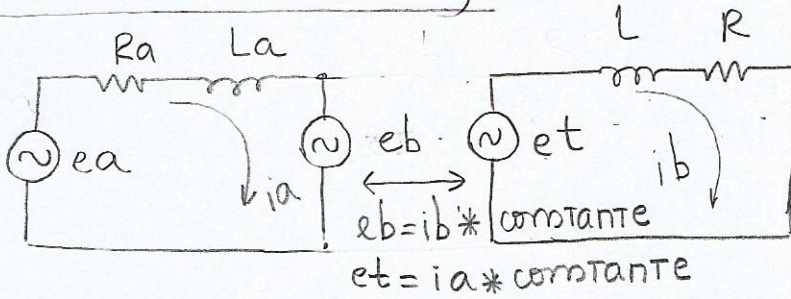 Ra La L R
ea ia eb et ib
eb = ib * constante
et = ia * constante